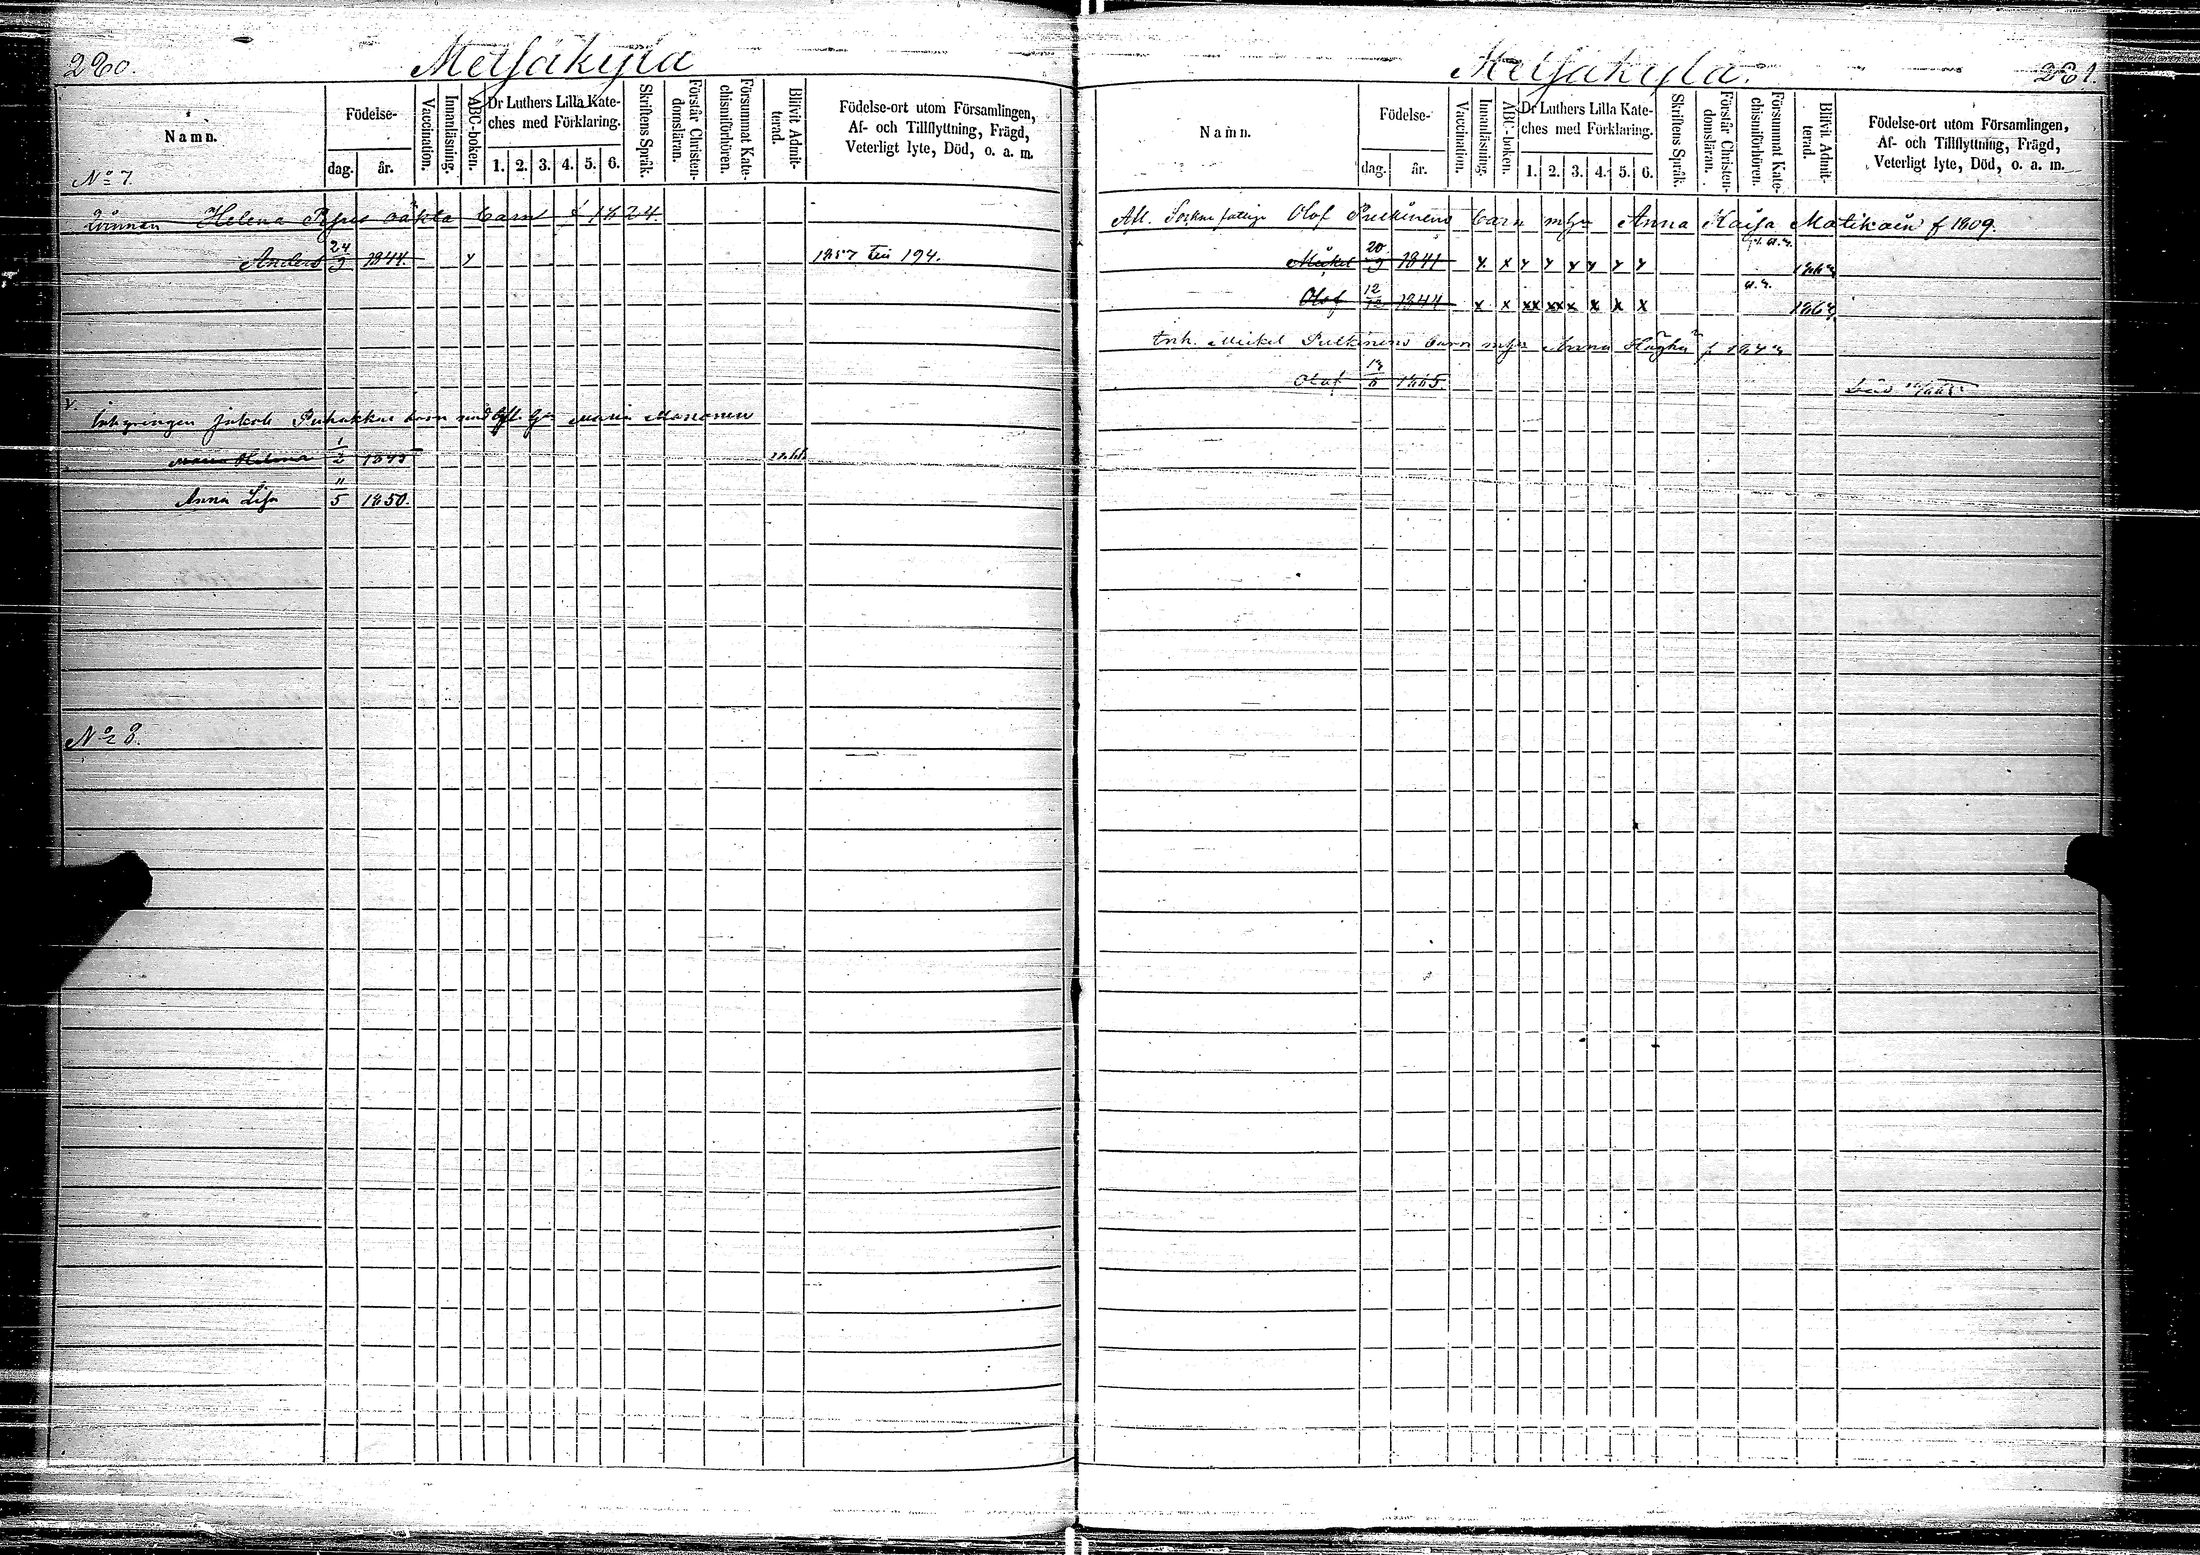 260.
Metsäkylä
Namn.
Födelse-
dag.
år.
Vaccination.
Innanläsning.
ABC-boken.
Dr Luthers Lilla Kate-
ches med Förklaring.
1. 2. 3. 4. 5. 6.
Skriftens Språk.
Förstår Christen-
domsläran.
Försummat Kate-
chismiförhören.
Blifvit Admit-
terad.
Födelse-ort utom Församlingen,
Af- och Tillflyttning, Frägd,
Veterligt lyte, Död, o. a. m.
No 7.
Qvinnan Helena oäkta barn f 1824
Anders 24/9 1844. x 1857 till 194.
Inhysingen Jakob Puhakkas barn med Maria Manninen
Maria Helena 1/2 1845
Anna Lisa 11/5 1850.
No 8.
Metsäkylä.
261.
Namn.
Födelse-
dag.
år.
Vaccination.
Innanläsning.
ABC-boken.
Dr Luthers Lilla Kate-
ches med Förklaring.
1. 2. 3. 4. 5. 6.
Skriftens Språk.
Förstår Christen-
domsläran.
Försummat Kate-
chismiförhören.
Blifvit Admit-
terad.
Födelse-ort utom Församlingen,
Af- och Tillflyttning, Frägd,
Veterligt lyte, Död, o. a. m.
Olof Pulkinens barn m hu Anna Kaisa Matikain f 1809.
Mickel 20/9 1841 x x x x x x x x
Olof 12/12 1844 x x xx xx x x x x
Inh. Mickel Pulkinens barn m hu Anna
Olof 1865